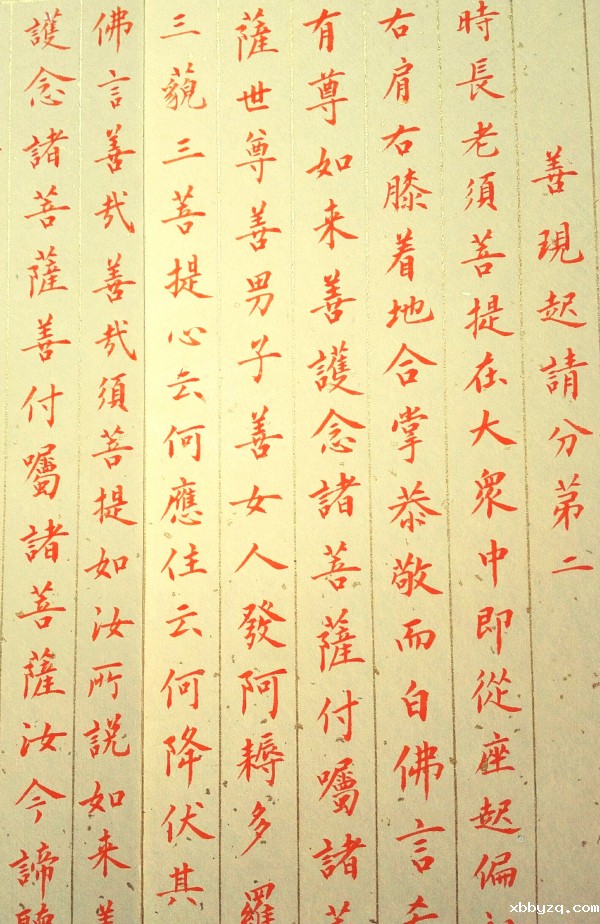 善現起請分第二
時長老須菩提在大衆中即從座起偏
右肩右膝着地合掌恭敬而白佛言
有尊如来善護念諸菩薩付囑諸
薩世尊善男子善女人發阿耨多羅
三藐三菩提心云何應住云何降伏其
佛言善哉善哉須菩提如汝所説如来
護念諸菩薩善付囑諸菩薩汝今諦
xbbyzq.com